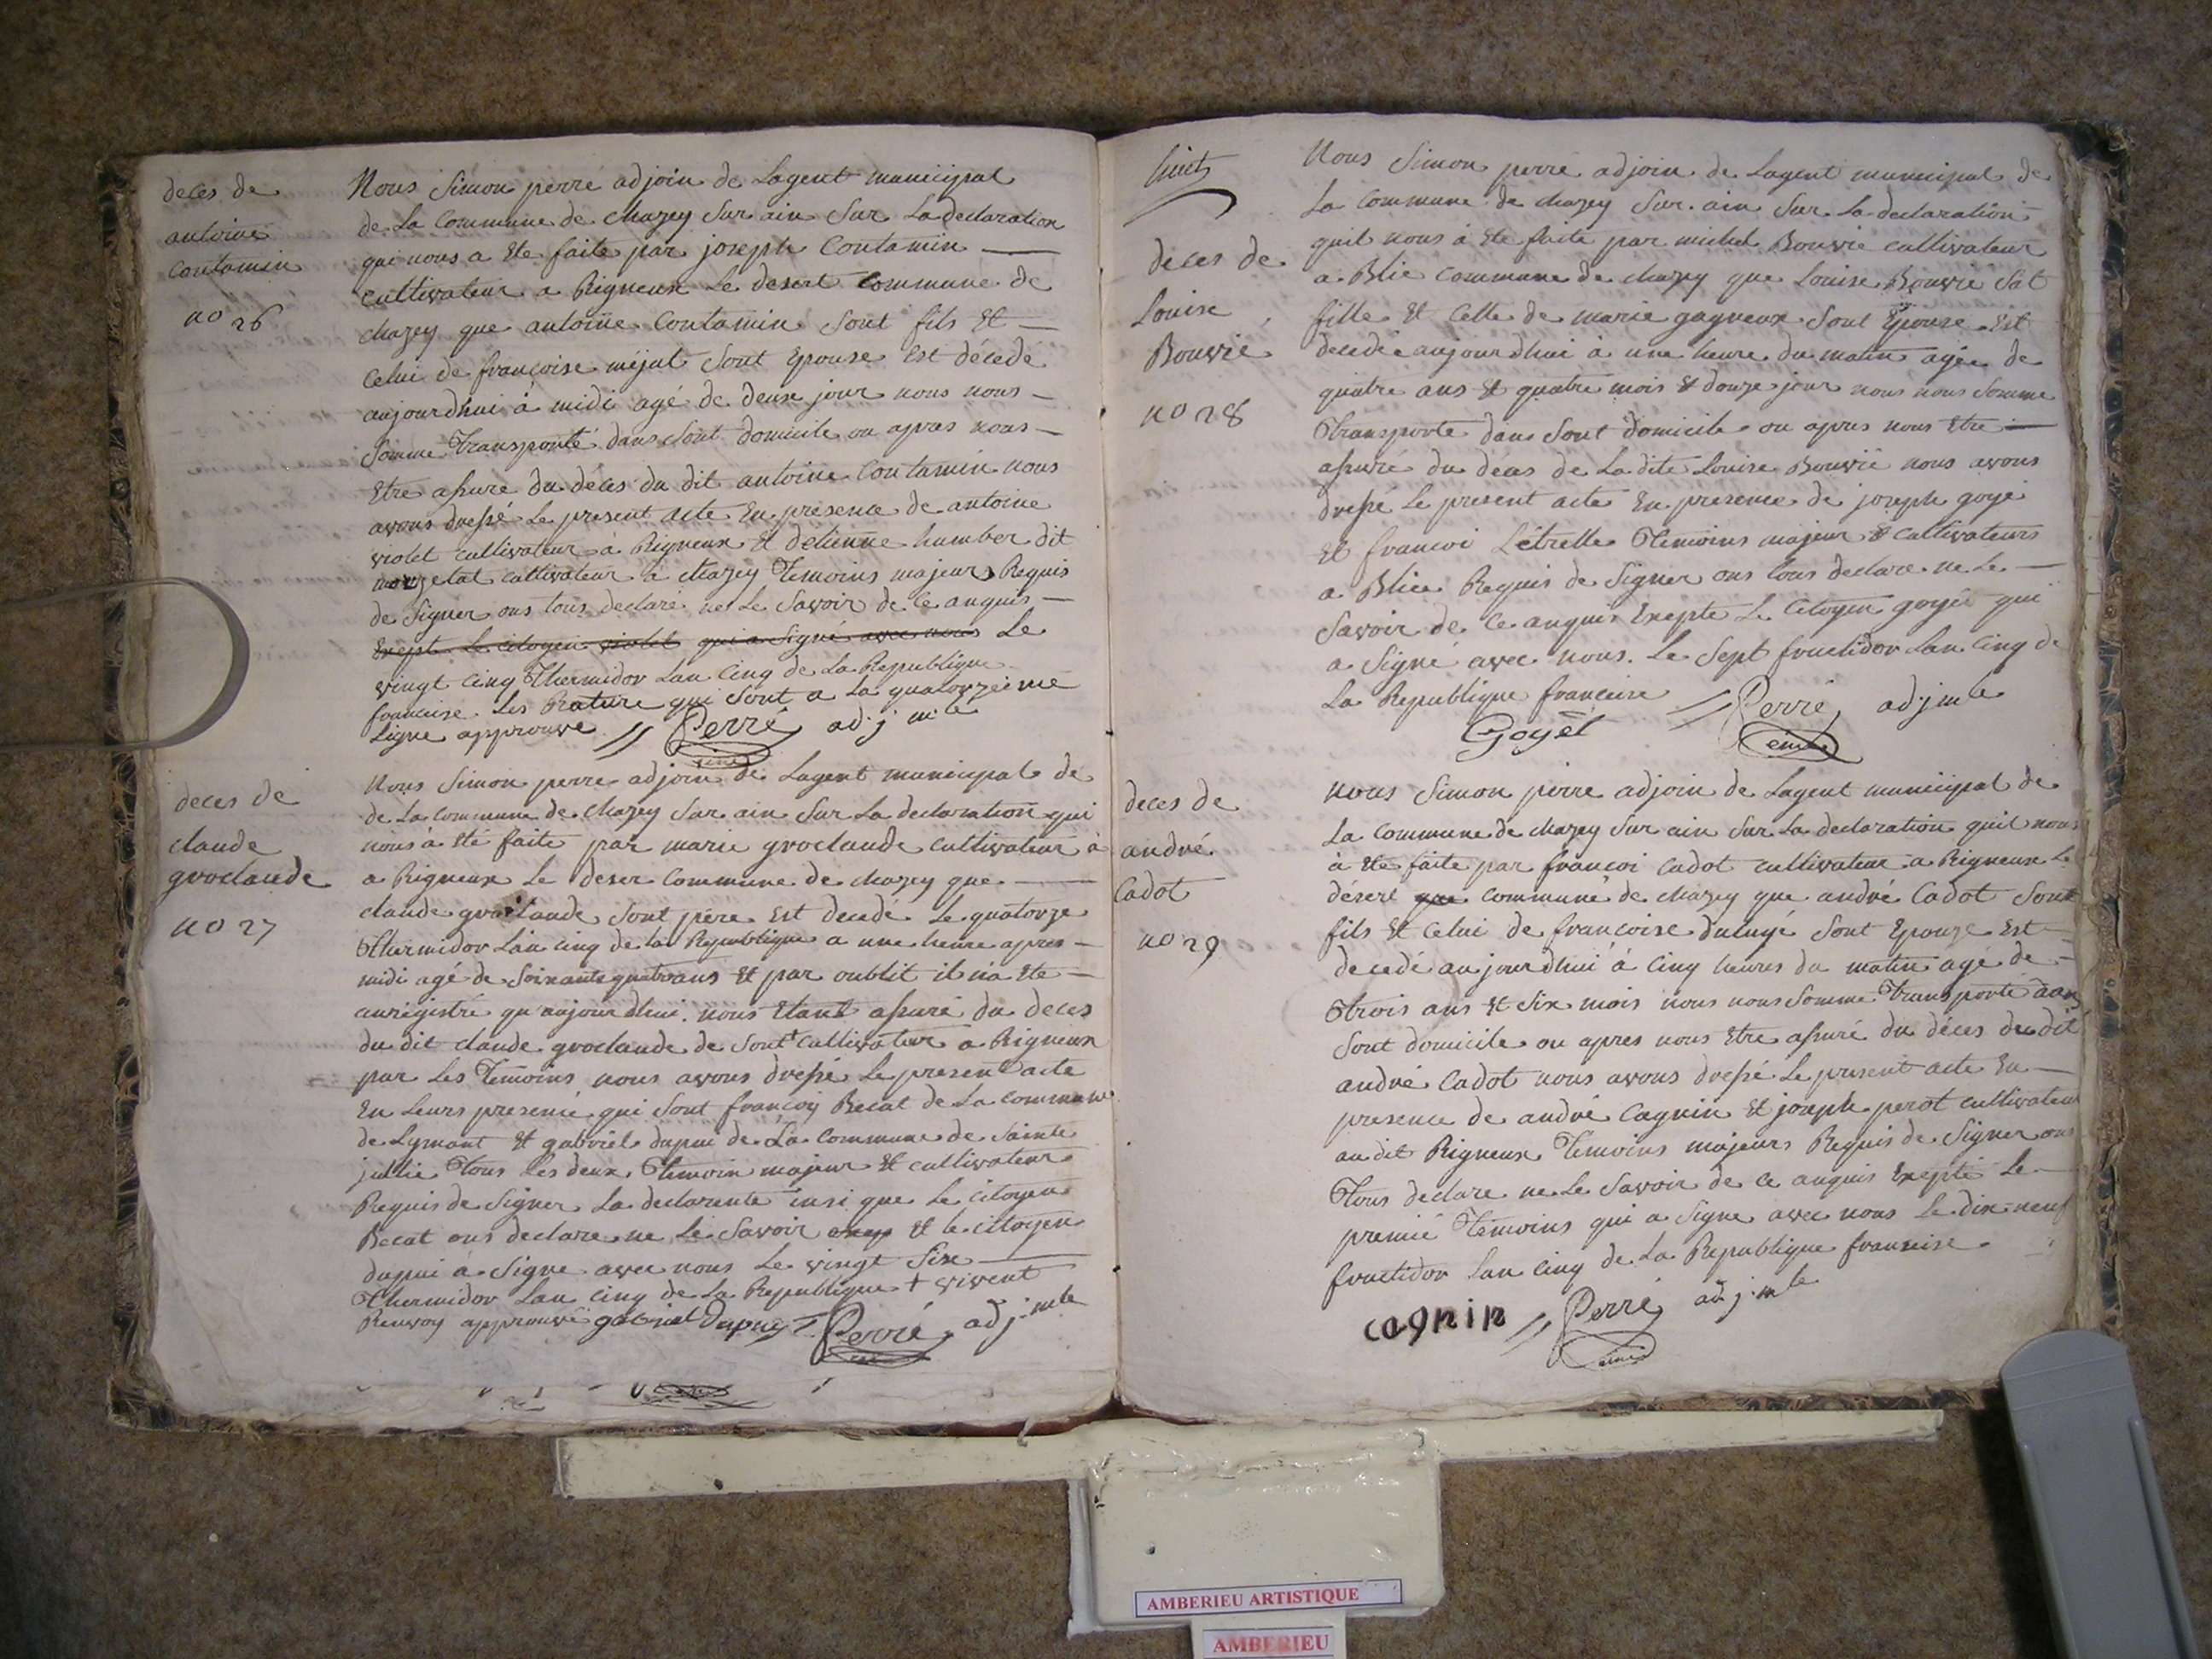 deces de
antoine
contamin
no 26
Nous Simon perré adjoin de Lagent municipal
de La Commune de chazey Sur ain Sur La declaration
qui nous a Ete faite par joseph Contamin
cultivateur a Rigneux Le desert Commune de
chazey que antoine Contamin Sont fils Et
Celui de francoise mejat Sont Epouse Est décedé
aujourdhui à midi agé de deux jour nous nous
Somme transporté dans Sont domicile ou apres nous
Etre assuré du déces du dit antoine Contamin nous
avons dressé Le present acte En présence de antoine
violet cultivateur à Rigneux Et detienne humber dit
cultivateur a chazey Temoins majeur Requis
de Signer ons tous declaré ne Le Savoir de Ce anquis
Exept Le citoyen violet qui a Signé avec nous Le
vingt Cinq Thermidor Lan Cinq de La Republique
francaise. Les Rature qui Sont a La quatorzeime
Ligne approuvé // Perré adj. m.le
deces de
claude
groclaude
no 27
Nous Simon perre adjoin de Lagent municipal de
de La commune de chazey Sur ain Sur La declaration qui
nous à été faite par marie groclaude cultivateur à
a Rigneux Le deser Commune de chazey que
claude groclaude Sont père Est decedé Le quatorze
Thermidor Lan cinq de la Republique a une heure apres
midi agé de Soixante quatrans Et par oublit il na Ete
enregistré qu'aujourdhui. nous Etant assuré du deces
du dit claude groclaude de Sont cultivateur a Rigneux
par Les Temoins nous avons dressé Le present acte
En Leurs presence qui Sont francoi Becat de La commune
de Lymant Et gabriel dupui de La Commune de Sainte
jullie Tous Les deux Temoin majeur Et cultivateur
Requis de Signer La declarente insi que Le citoyen
Becat ons declare ne Le Savoir exep Et le citoyen
dupui à Signe avec nous Le vingt Six
Thermidor Lan Cinq de La Republique + vivent
Renvoy approuvé gabriel Dupuy // Perré adj. m.le
huit
deces de
Louise
Bouvié
no 28
Nous Simon perré adjoin de Lagent municipal de
La Commune de chazey Sur ain Sur La declaration
quil nous à Ete faite par michel Bouvie cultivateur
a Blie Commune de chazey que Louise Bouvie Sat
fille Et Celle de marie gagneux Sont Epouse Est
decedé aujourdhui à une heure du matin agée de
quatre ans Et quatre mois Et douze jour nous nous Somme
Transporte dans Sont domicile ou apres nous Etre
assuré du déces de La dite Louise Bouvié nous avons
dressé Le present acte En presence de joseph goyé
Et francoi Létrelle Temoins majeur Et Cultivateurs
a Blie Requis de Signer ons tous declare ne Le
Savoir de Ce anquis Exepte Le Citoyen goyée qui
a Signé avec nous. Le Sept fructidor Lan Cinq de
La Republique francaise // Perré adjmle
Goyët
deces de
andré
Cadot
no 29
Nous Simon perre adjoin de Lagent municipal de
La Commune de chazey Sur ain Sur La declaration quil nous
à Ete faite par francoi Cadot cultivateur a Rigneux Le
désert que Commune de chazey que andré Cadot Sont
fils Et Celui de francoise Sont Epouze Est
decedé aujourdhui à Cinq heures du matin agé de
Trois ans Et Six mois nous nous Somme Transporté dans
Sont domicile ou apres nous Etre assuré du déces du dit
andré Cadot nous avons dressé Le present acte En
presence de andré Cagnin Et joseph perot cultivateur
au dit Rigneux Temoins majeurs Requis de Signer ons
Tous declare ne Le Savoir de Ce anquis Exepté Le
premié Témoins qui a Signe avec nous Le dix neuf
fructidor Lan Cinq de La Republique francaise.
cagnin // Perré adj. m le
AMBERIEU ARTISTIQUE
AMBERIEU